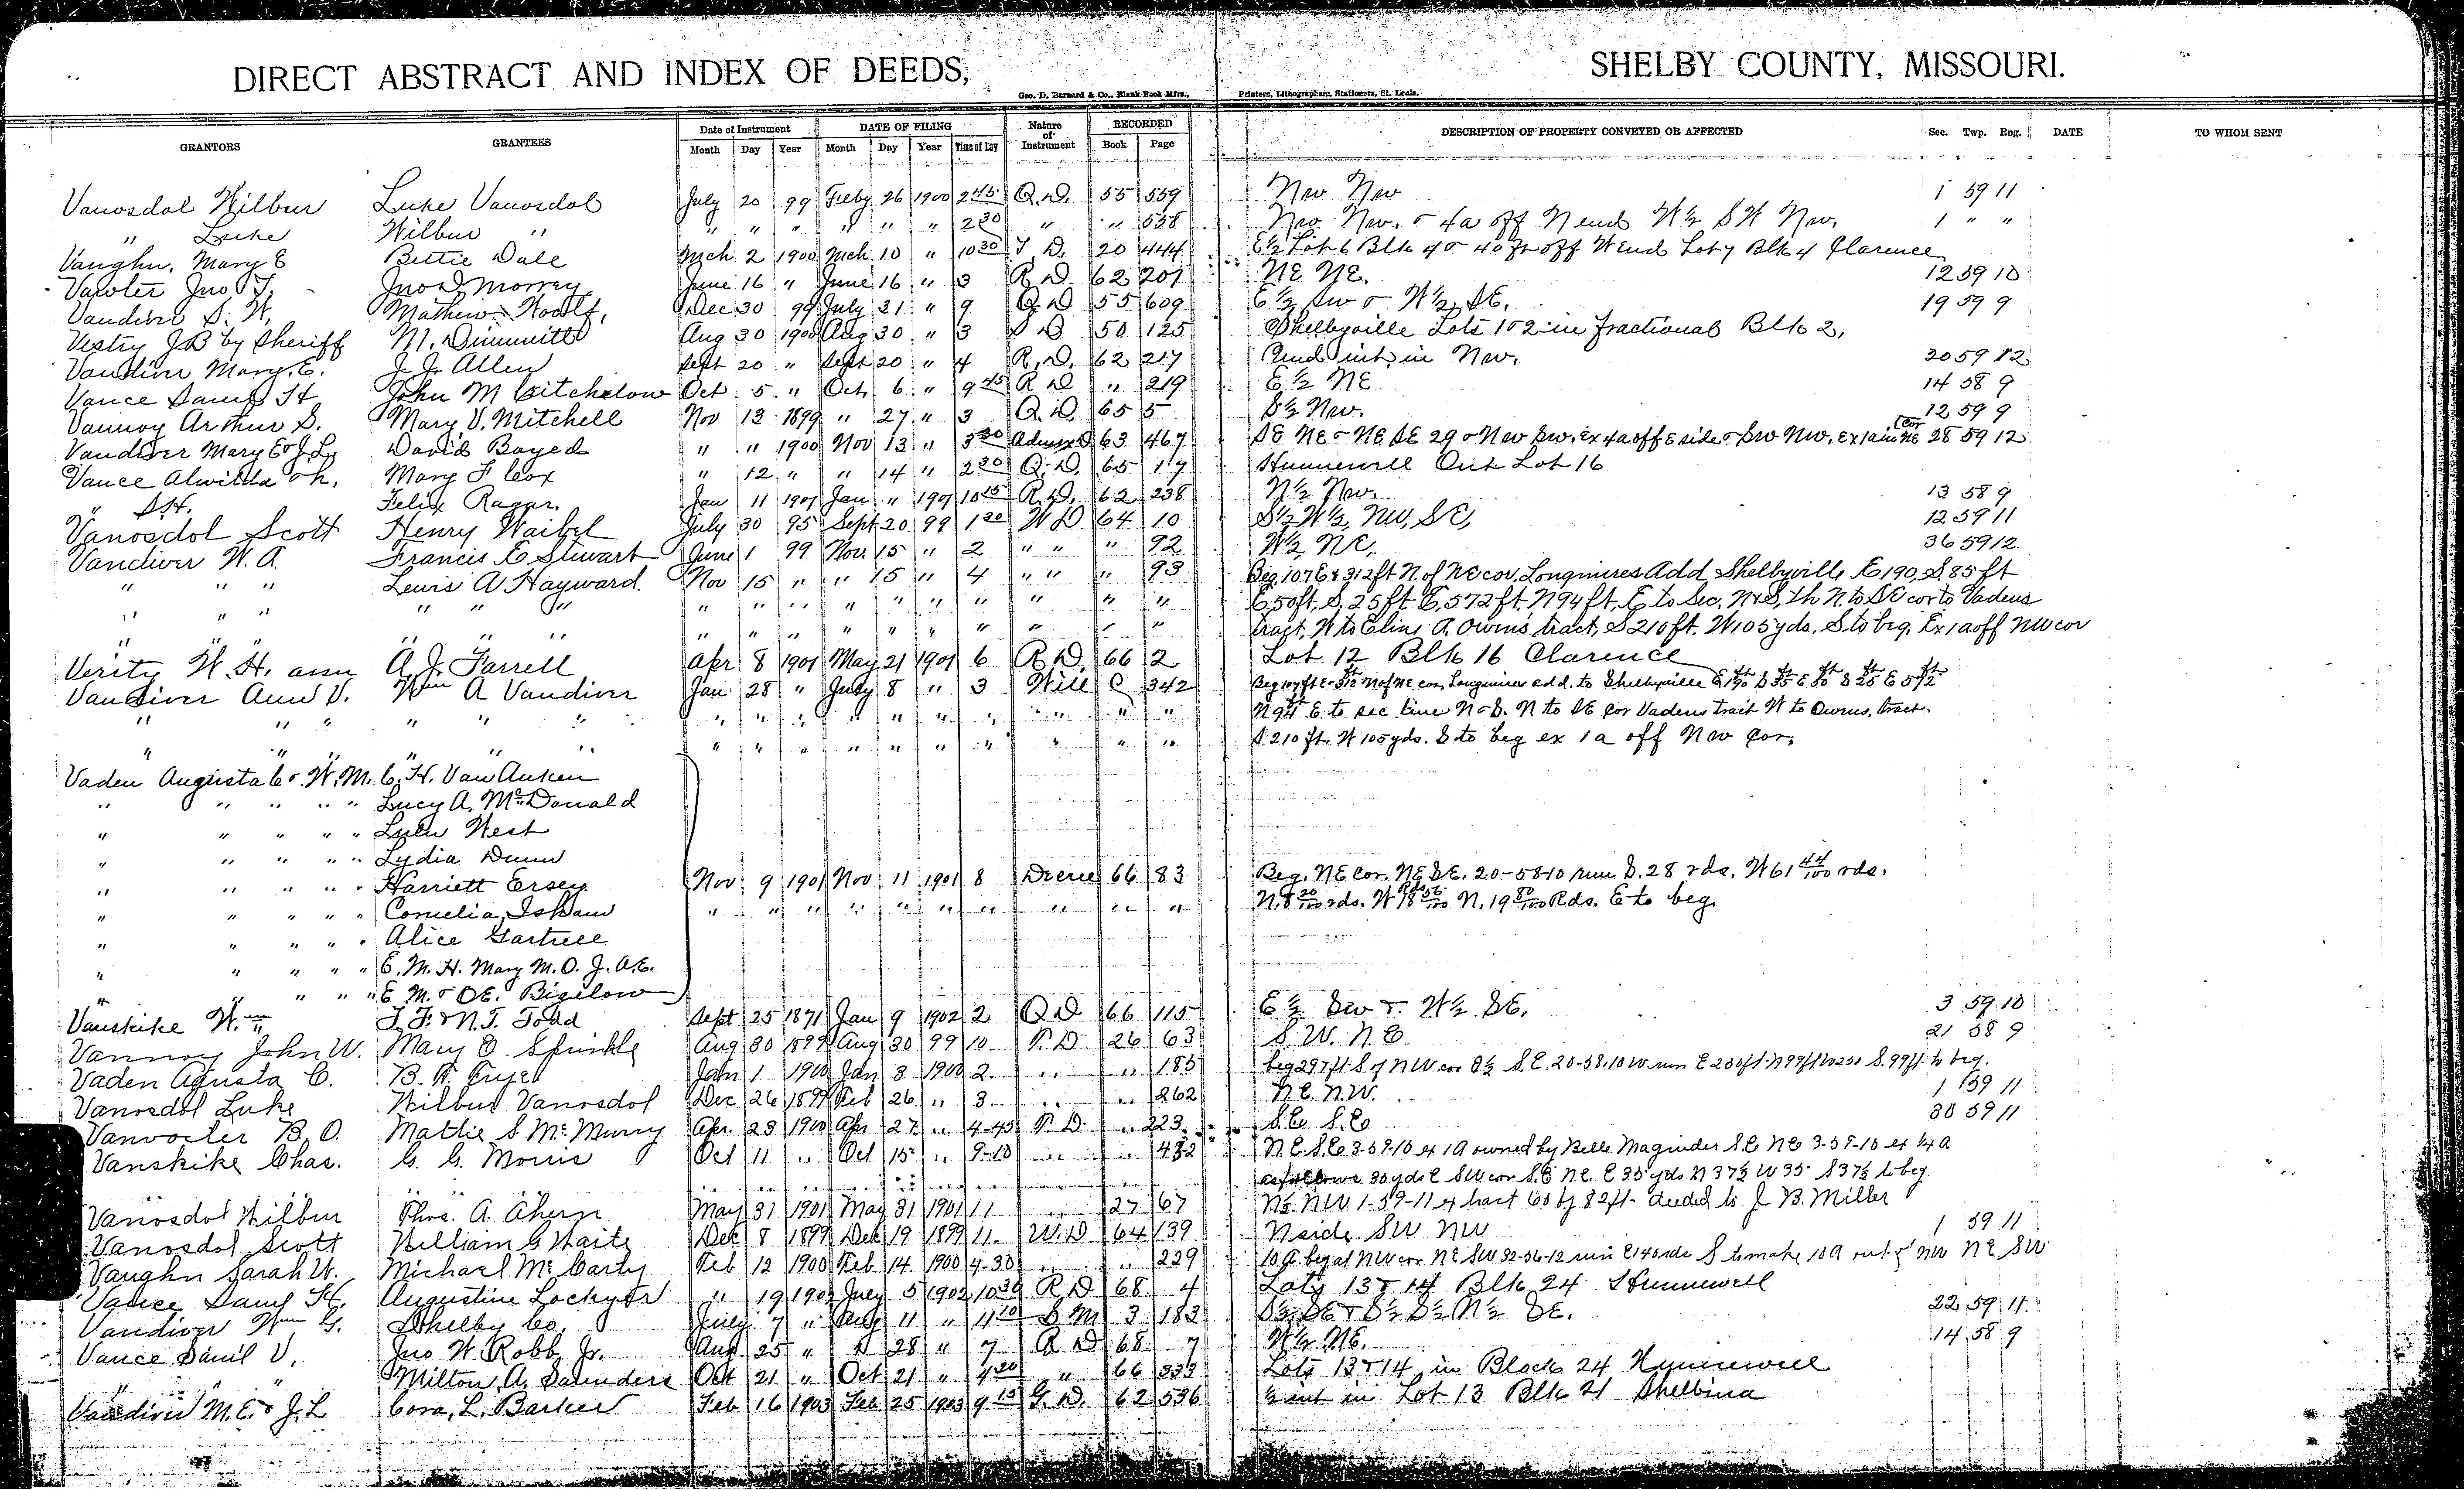 DIRECT ABSTRACT AND INDEX OF DEEDS, SHELBY COUNTY, MISSOURI.
Geo. D. Barnard & Co., Blank Book Mfrs., Printers, Lithographers, Stationers, St. Louis.
GRANTORS GRANTEES Date of Instrument DATE OF FILING Nature of Instrument RECORDED DESCRIPTION OF PROPERTY CONVEYED OR AFFECTED Sec. Twp. Rng. DATE TO WHOM SENT
Month Day Year Month Day Year Time of Day Book Page
Vanosdol Wilbur Luke Vanosdol July 20 99 Feby 26 1900 2 45 Q.D. 55 559 Nw Nw 1 59 11
" Luke Wilbur " " " " " " " 2 30 " " 558 Nw Nw. & 4a off N end W½ SW Nw. 1 " "
Vaughn, Mary E Bettie Dale Mch 2 1900 Mch 10 " 10 30 T. D. 20 444 E½ Lot 6 Blk 4 & 40 ft off W end Lot 7 Blk 4 Clarence
Vawter Jno T. Jno D Morrey June 16 " June 16 " 3 R D 62 201 NE NE. 12 59 10
Vandiver S. W. Mathew Woolf, Dec 30 99 July 31 " 9 Q D 55 609 E½ Sw & W½ SE. 19 59 9
Vestry J B by Sheriff M. Dimmitt Aug 30 1900 Aug 30 " 3 S D 50 125 Shelbyville Lots 1 & 2 in fractional Blk 2.
Vandiver Mary E. J. J. Allen Sept 20 " Sept 20 " 4 R. D. 62 217 Und int in Nw. 20 59 12
Vance Saml H John M Critchelow Oct 5 " Oct 6 " 9 45 R D " 219 E½ NE 14 58 9
Vannoy Arthur S. Mary V. Mitchell Nov 13 1899 " 27 " 3 Q. D. 65 5 S½ Nw. 12 59 9
Vandiver Mary E & J. L. David Bayed " " 1900 Nov 13 " 3 30 63 467 SE NE & NE SE 29 & Nw Sw. ex 4a off E side & Sw Nw. ex 1a in NE cor 28 59 12
Vance Alwilda Mary F Cox " 12 " " 14 " 2 30 Q. D. 65 17 Hunnewell Out Lot 16
" S.H. Felix Ragar. Jan 11 1901 Jan " 1901 10 15 R. D. 62 238 N½ Nw. 13 58 9
Vanosdol Scott Henry Waibel July 30 95 Sept 20 99 1 20 W D 64 10 S½ W½ NW, SE, 12 59 11
Vandiver W. A. Francis E Stewart June 1 99 Nov 15 " 2 " " " 92 W½ NE. 36 59 12
" " " Lewis A Hayward. Nov 15 " " 15 " 4 " " " 93 Beg. 107 E & 312 ft N. of NE cor. Longmires Add Shelbyville E 190, S. 85 ft
" " " " " " " " " " " " " " " " E, 50 ft. S. 25 ft E, 572 ft. N 94 ft, E to Sec. N & S, th N. to SE cor to Vadens
" " " " " " " " " " " " " " " " tract, W to Elins A. Owens tract, S 210 ft. W 105 yds. S. to beg. Ex 1a off NW cor
Verity W. H. assn A. J. Farrell Apr 8 1901 May 21 1901 6 R. D. 66 2 Lot 12 Blk 16 Clarence
Vandiver Ann V. Wm A Vandiver Jan 28 " July 8 " 3 Will C 342 Beg 107 ft E & 312 ft N of NE cor Longmires add. to Shelbyville E 190 ft S 85 ft E 50 ft S 25 ft E 572 ft
" " " " " " " " " " " " " " " " N 94 ft E to sec line N & S. N to SE cor Vadens tract W to Owens, tract.
" " " " " " " " " " " " " " " " S. 210 ft. W 105 yds. S to beg ex 1a off Nw Cor,
Vaden Augusta C & W. M. C. H. Van Auken
" " " " Lucy A. McDonald
" " " " Lulu West
" " " " Lydia Dunn
" " " " Harriett Ersey Nov 9 1901 Nov 11 1901 8 Decree 66 83 Beg. NE Cor. NE SE. 20-58-10 run S. 28 rds, W 61 44/100 rds.
" " " " Cornelia Isham " " " " " " " " " " N. 8 20/100 rds. W 18 56/100 Rds N. 19 80/100 Rds. E to beg.
" " " " Alice Gartrell
" " " " E. M. H. Mary M. O. J. A. E.
" " " " E M. & O E. Bigelow
Vanskike Wm T. F. & N. T. Todd Sept 25 1871 Jan 9 1902 2 Q D 66 115 E½ Sw & W½ SE. 3 59 10
Vannoy John W. Mary E. Sprinkle Aug 30 1899 Aug 30 99 10 R. D 26 63 S. W. N. E 21 58 9
Vaden Agusta C. B. F. Jan 1 1900 Jan 3 1900 2 " " 185 beg 297 ft S of NW cor E½ S. E. 20-58-10 W run E 230 ft N 99 ft W 230 S. 99 ft to beg.
Vanosdol Luke Wilbur Vanosdol Dec 26 1899 Feb 26 " 3 " " 262 N. E. N.W. 1 59 11
B. O. Mattie S. McMurry Apr. 23 1900 Apr 27 " 4-45 R. D. " 223 S.E. S.E. 30 59 11
Vanskike Chas. G. G. Morris Oct 11 " Oct 15 " 9-10 " " 432 N.E. S.E. 3-59-10 ex 1A owned by Belle Maginder S.E NE 3-59-10 ex ¼ A
as follows 30 yds E SW cor S.E. N.E. E 35 yds N 37½ W 35 S 37½ to beg
Vanosdol Wilbur Thos. A. Ahern May 31 1901 May 31 1901 11 " 27 67 N½ NW 1-59-11 ex tract 60 by 82 ft deeded to J B. Miller
Vanosdol Scott William G Waite Dec 8 1899 Dec 19 1899 11 W. D 64 139 N side SW NW 1 59 11
Vaughn Sarah W. Michael McCarty Feb 12 1900 Feb 14 1900 4-30 " " 229 10 A beg at NW cor NE SW 32-56-12 run E 140 rds S to make 10 A out of NW NE SW
Vance Saml H. Augustine Lockyer " 19 1902 July 5 1902 10 30 R D 68 4 Lots 13 & 14 Blk 24 Hunnewell
Vandiver Wm G. Shelby Co. July 7 " Aug 11 " 11 10 S M 3 183 S½ SE & S½ S½ N½ SE. 22 59 11
Vance Saml V. Jno W. Robb Jr. Aug 25 " " 28 " 7 R D 68 7 W½ NE. 14 58 9
" " " Milton A. Saunders Oct 21 " Oct 21 " 4 30 " 66 333 Lots 13 & 14 in Block 24 Hunnewell
Vandiver M. E. & J. L Cora. L. Barker Feb 16 1903 Feb 25 1903 9 15 G. D. 62 536 ½ int in Lot 13 Blk 21 Shelbina